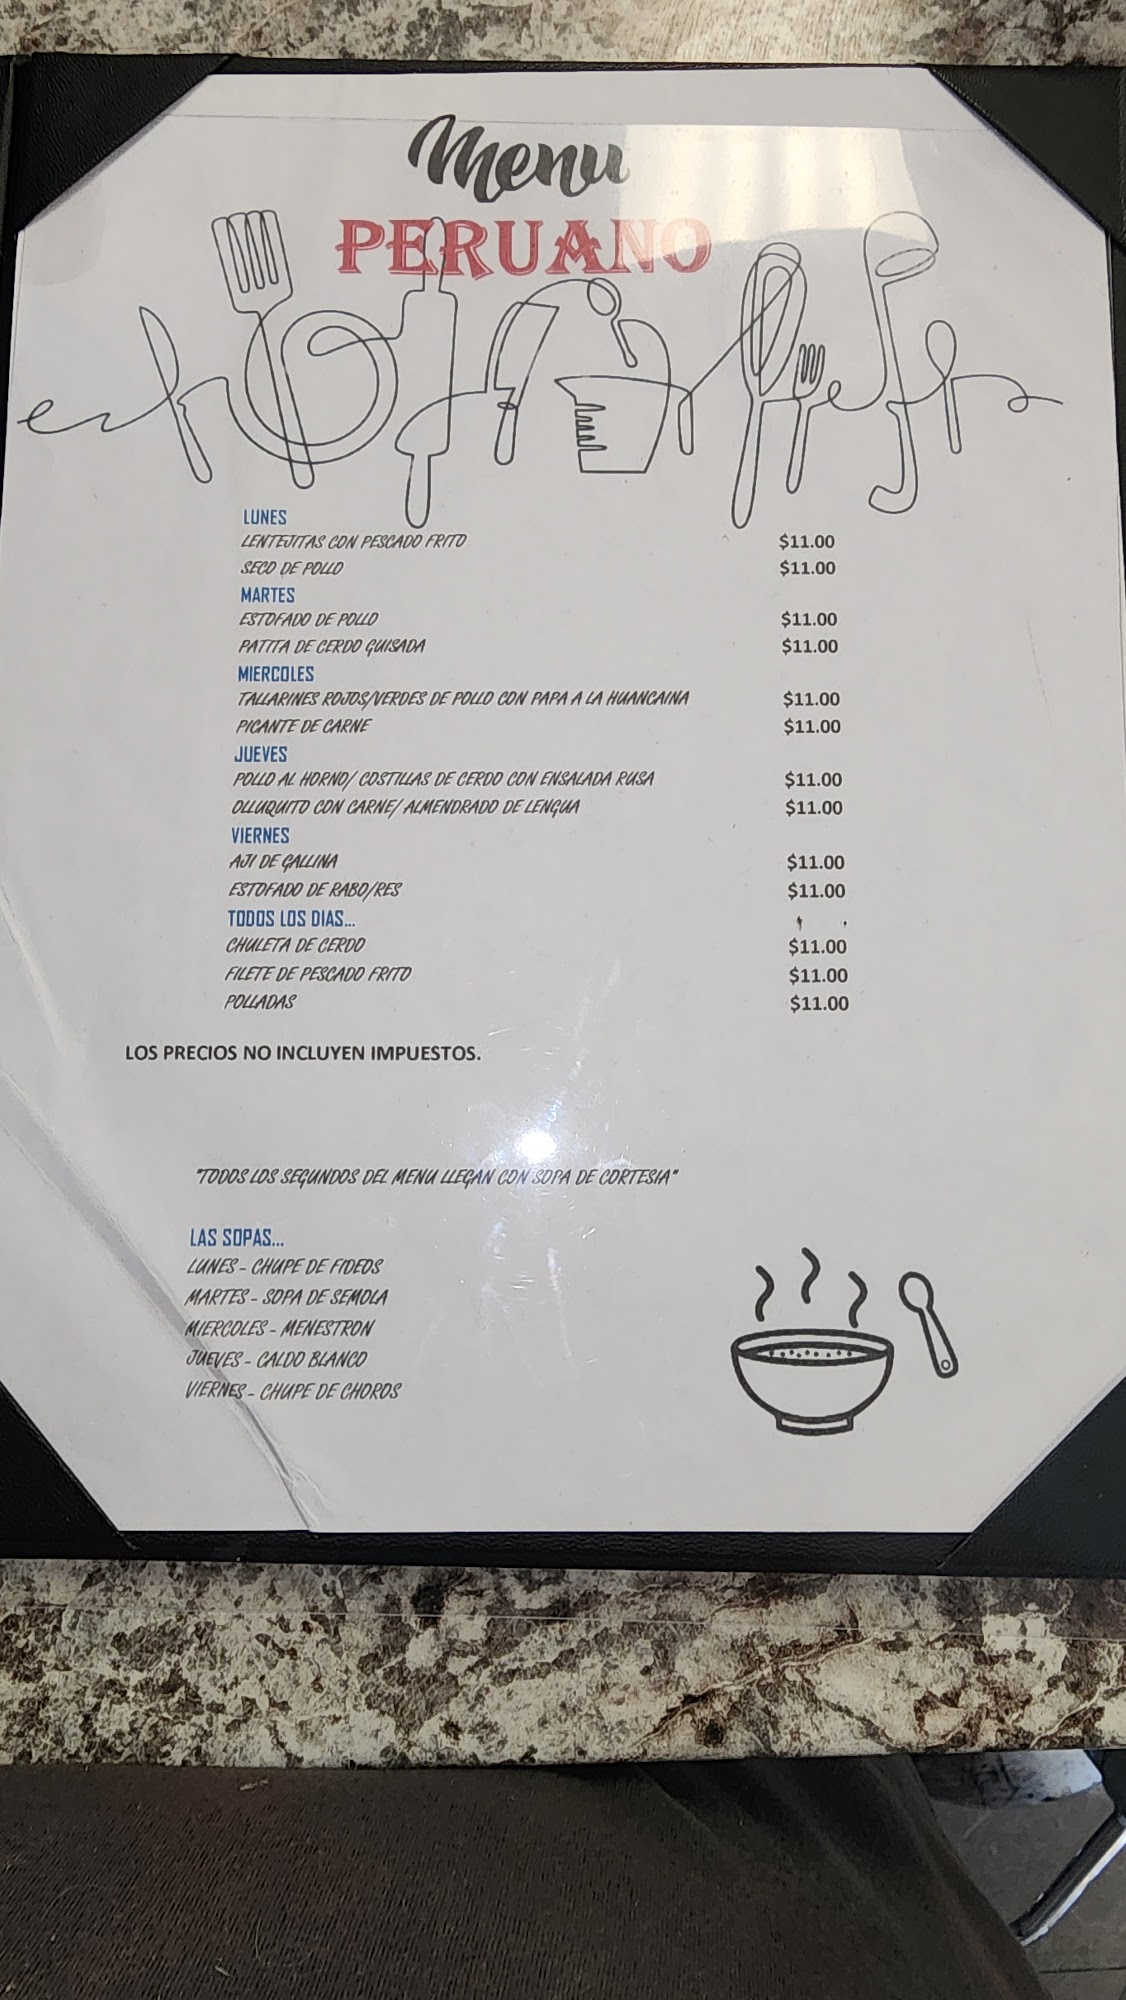 Menu
PERUANO
LUNES
LENTEJITAS CON PESCADO FRITO $11.00
SECO DE POLLO $11.00
MARTES
ESTOFADO DE POLLO $11.00
PATITA DE CERDO GUISADA $11.00
MIERCOLES
TALLARINES ROJOS/VERDES DE POLLO CON PAPA A LA HUANCAINA $11.00
PICANTE DE CARNE $11.00
JUEVES
POLLO AL HORNO/ COSTILLAS DE CERDO CON ENSALADA RUSA $11.00
OLLUQUITO CON CARNE/ ALMENDRADO DE LENGUA $11.00
VIERNES
AJI DE GALLINA $11.00
ESTOFADO DE RABO/RES $11.00
TODOS LOS DIAS...
CHULETA DE CERDO $11.00
FILETE DE PESCADO FRITO $11.00
POLLADAS $11.00
LOS PRECIOS NO INCLUYEN IMPUESTOS.
"TODOS LOS SEGUNDOS DEL MENU LLEGAN CON SOPA DE CORTESIA"
LAS SOPAS...
LUNES - CHUPE DE FIDEOS
MARTES - SOPA DE SEMOLA
MIERCOLES - MENESTRON
JUEVES - CALDO BLANCO
VIERNES - CHUPE DE CHOROS